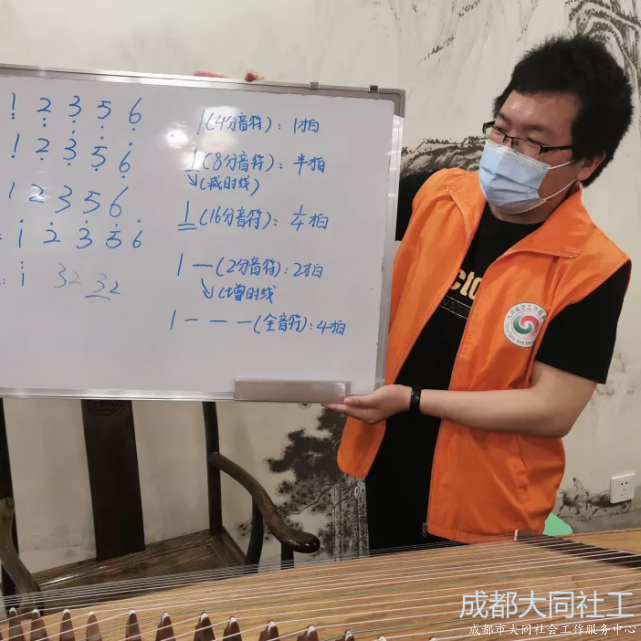 1 2 3 5 6
1 2 3 5 6
1 2 3 5 6
1 2 3 5 6
1 32 32
1(4分音符): 1拍
1(8分音符): 半拍
(减时线)
1(16分音符): 1/4拍
1 — (2分音符): 2拍
(增时线)
1 — — — (全音符): 4拍
cto
成都大同社工
成都市大同社会工作服务中心